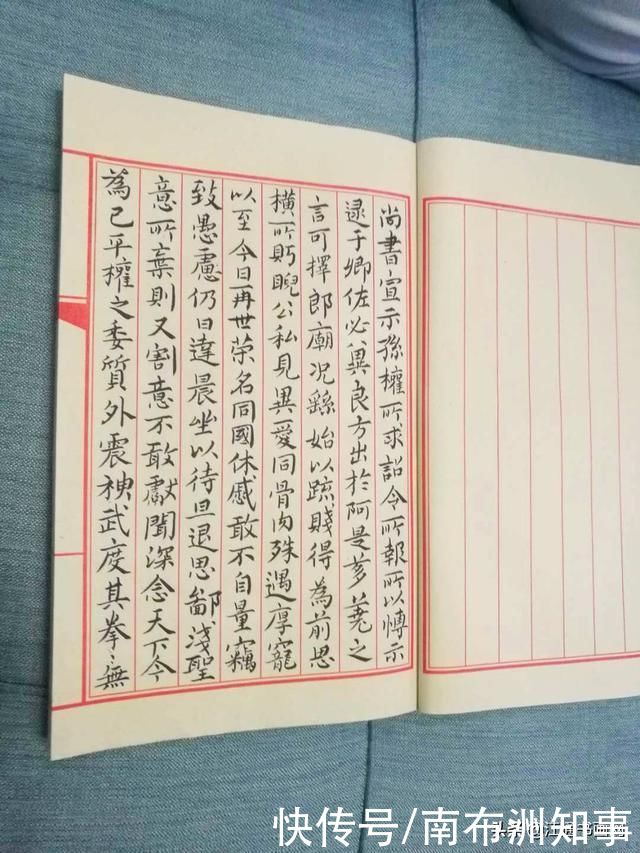 尚書宣示孫權所求詔令所報所以愽示
逮于卿佐必兾良方出於阿是芻蕘之
言可擇郎廟况繇始以疏賤得為前恩
橫所眄睨公私見異愛同骨肉殊遇厚寵
以至今日再世荣名同國休慼敢不自量竊
致愚慮仍日達晨坐以待旦退思鄙淺聖
意所棄則又割意不敢獻聞深念天下今
為已平權之委質外震神武度其拳〻無
快传号/南布洲知事